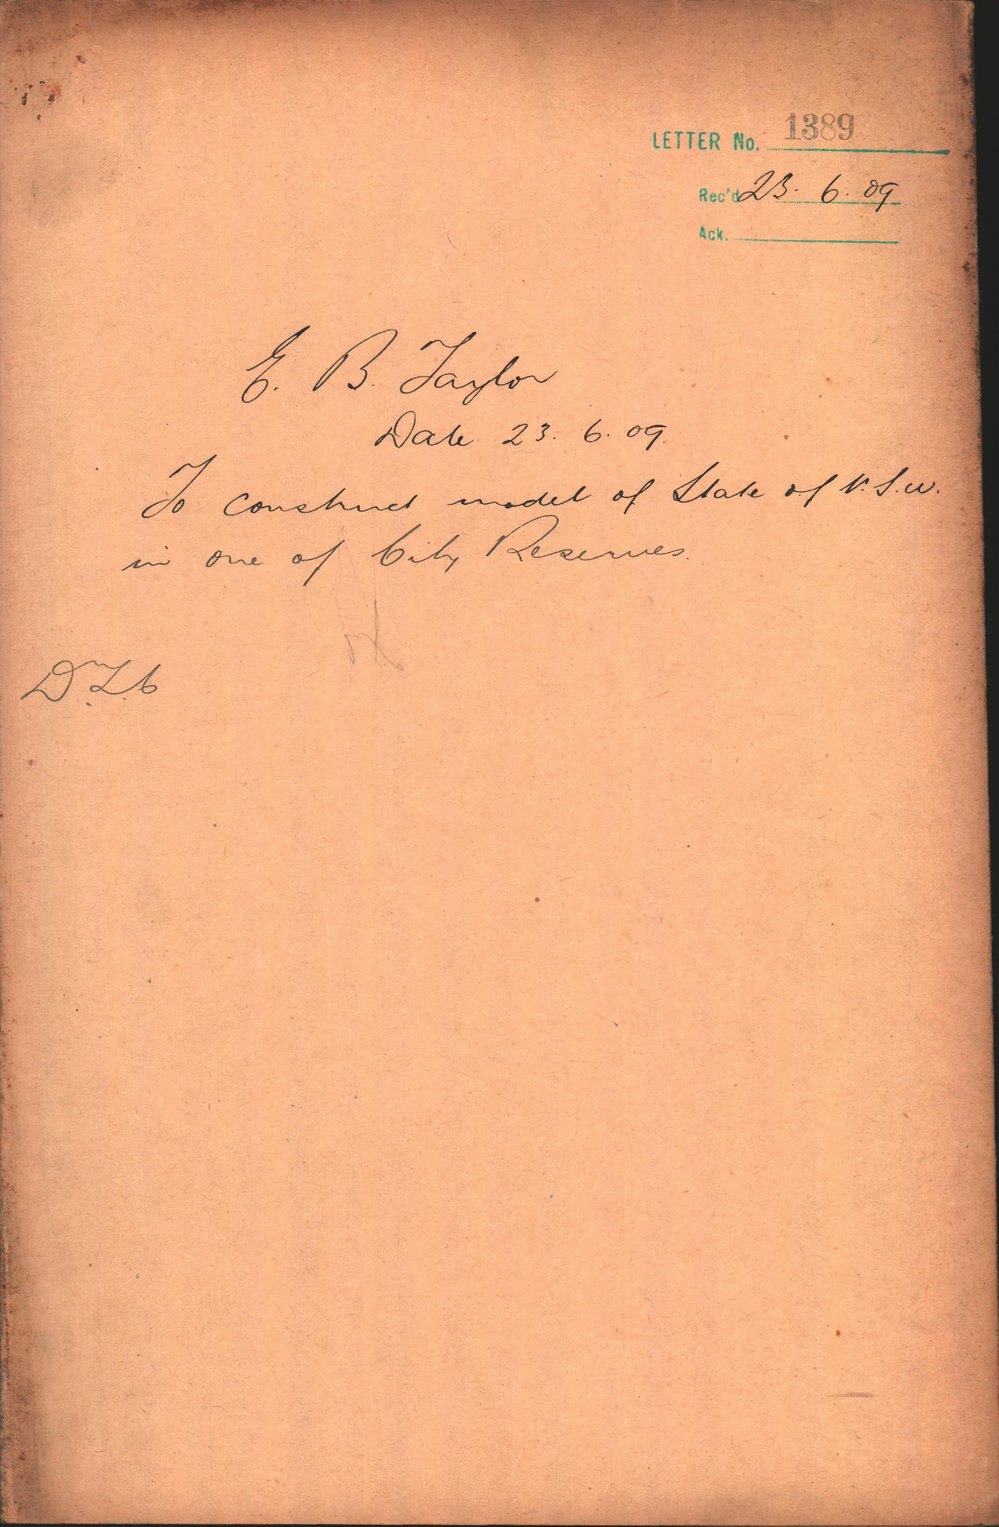 LETTER No. 1389
Rec'd 23. 6. 09
Ack.
E. B. Taylor
Date 23. 6. 09.
To construct model of State of N.S.W.
in one of City Reserves.